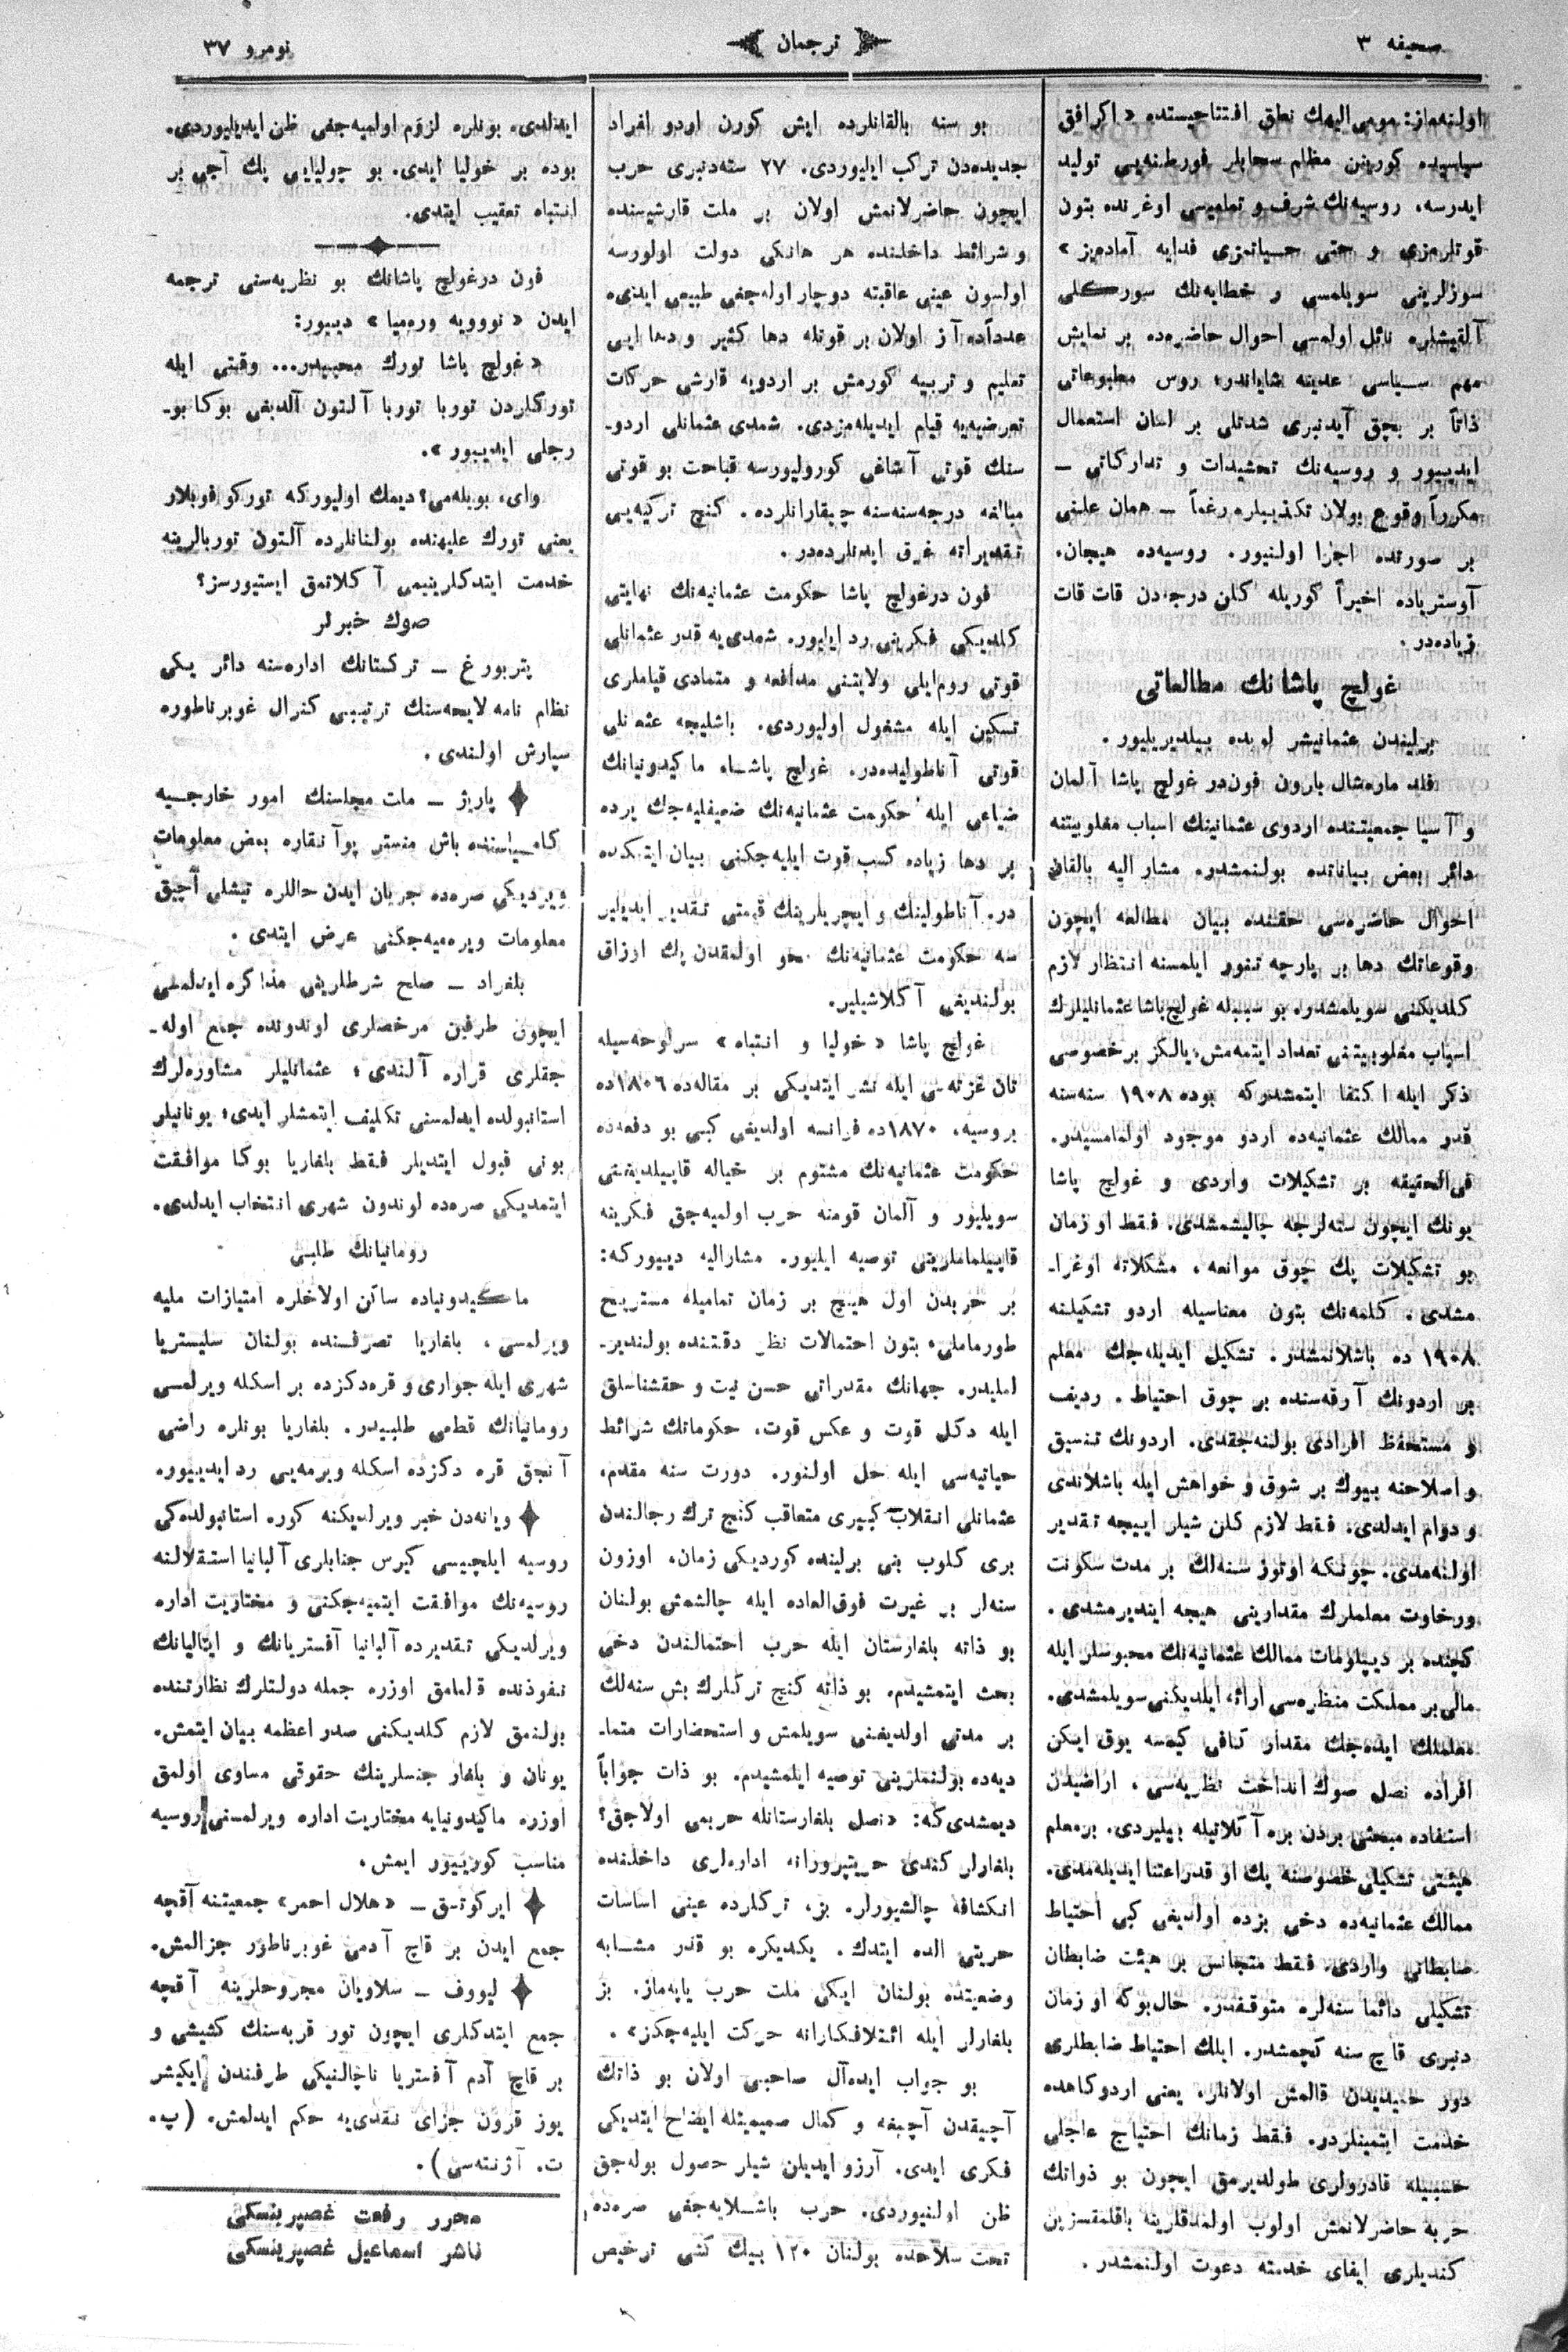 صحیفه ۳
ترجمان
نومرو ۳۷
اولنه‌ماز: مومی الیهك نطق افتتاحیسنده «اكر افق
سیاسیده كورینن مظلم سحابلر فورطنه‌یی تولید
ایدرسه، روسیه‌نك شرف و تعظیمی اوغرنده بتون
قوتلرمزی و حتی حیاتمزی فدایه آماده‌یز»
سوزلرینی سویلمسی و خطابه‌نك سوركلی
آلقیشلره نائل اولمسی احوال حاضره‌ده بر نمایش
مهم سیاسی عدینه شایاندر، روس مطبوعاتی
ذاتاً بر بچق آیدنبری شدتلی بر لسان استعمال
ایدییور و روسیه‌نك تحشیدات و تداركاتی –
مكرراً وقوع بولان تكذیبلره رغماً – همان علنی
بر صورتده اجرا اولنیور. روسیه‌ده هیجان،
آوستریاده اخیراً كوریله كلن درجه‌دن قات قات
زیاده‌در.
غولچ پاشانك مطالعاتی
برلیندن عثمانیشر لویده بیلدیریلیور.
فلد ماره‌شال بارون فون‌در غولچ پاشا آلمان
و آسیا جمعیتنده اردوی عثمانینك اسباب مغلوبیتنه
دائر بعض بیاناتده بولنمشدر. مشار الیه بالقان
احوال حاضره‌سی حقنده بیان مطالعه ایچون
وقوعاتك دها بر پارچه تنور ایلمسنه انتظار لازم
كلدیكنی سویلمشدر. بو سببله غولچ پاشا عثمانلیلرك
اسباب مغلوبیتنی تعداد ایتمه‌مش، یالكز بر خصوصی
ذكر ایله اكتفا ایتمشدركه بوده ۱۹۰۸ سنه‌سنه
قدر ممالك عثمانیه‌ده اردو موجود اولمامسیدر.
فی‌الحقیقه بر تشكیلات واردی و غولچ پاشا
بونك ایچون سنه‌لرجه چالیشمشدی. فقط او زمان
بو تشكیلات پك چوق موانعه، مشكلاته اوغرا-
مشدی. كلمه‌نك بتون معناسیله اردو تشكیلنه
۱۹۰۸ ده باشلانمشدر. تشكیل ایدیله‌جك معلم
بر اردونك آرقه‌سنده بر چوق احتیاط. ردیف
و مستحفظ افرادی بولنه‌جقدی. اردونك تنسیق
و اصلاحنه بیوك بر شوق و خواهش ایله باشلاندی
و دوام ایدلدی. فقط لازم كلن شیلر اییجه تقدیر
اولنه‌مدی. چونكه اوتوز سنه‌لك بر مدت سكونت
ورخاوت معلملرك مقدارینی هیچه ایندیرمشدی.
كچنده بر دیپلومات ممالك عثمانیه‌نك محبوسلر ایله
مالی بر مملكت منظره‌سی ارائه ایلدیكنی سویلمشدی.
معلملك ایده‌جك مقدار كافی كیمسه یوق ایكن
افراده نصل صوك انداخت نظریه‌سی، اراضیدن
استفاده مبحثی بردن بره آكلاتیله بیلیردی. بر معلم
هیئتی تشكیلی خصوصنه پك او قدر اعتنا ایدیله‌مدی.
ممالك عثمانیه‌ده دخی بزده اولدیغی كبی احتیاط
ضابطانی واردی. فقط متجانس بر هیئت ضابطان
تشكیلی دائما سنه‌لره متوقفدر. حال‌بوكه او زمان
دنبری قاچ سنه كچمشدر. ایلك احتیاط ضابطلری
دور حمیدیدن قالمش اولانلر، یعنی اردوكاهده
خدمت ایتمینلردر. فقط زمانك احتیاج عاجلی
حسبیله قادرولری طولدیرمق ایچون بو ذواتك
حربه حاضرلانمش اولوب اولمدقلرینه باقلمقسزین
كندیلری ایفای خدمته دعوت اولنمشدر.
بو سنه بالقانلرده ایش كورن اردو افراد
جدیده‌دن تركب ایلیوردی. ۲۷ سنه‌دنبری حرب
ایچون حاضرلانمش اولان بر ملت قارشیسنده
و شرائط داخلنده هر هانكی دولت اولورسه
اولسون عینی عاقبته دوچار اوله‌جغی طبیعی ایدی.
عدداً ده آز اولان بر قوتله دها كثیر و دها ایی
تعلیم و تربیه كورمش بر اردویه قارشی حركات
تعرضیه‌یه قیام ایدیله‌مزدی. شمدی عثمانلی اردو-
سنك قوتی آشاغی كورولیورسه قباحت بو قوتی
مبالغه درجه‌سنه‌سنه چیقارانلرده. كنج تركیه‌یی
تقدیراته غرق ایدنلرده‌در.
فون درغولچ پاشا حكومت عثمانیه‌نك نهایتی
كلدیكی فكرینی رد ایلیور. شمدی‌یه قدر عثمانلی
قوتی روم‌ایلی ولایتنی مدافعه و متمادی قیاملری
تسكین ایله مشغول اولیوردی. باشلیجه عثمانلی
قوتی آناطولیده‌در. غولچ پاشا، ماكیدونیانك
ضیاعی ایله حكومت عثمانیه‌نك ضعیفلیه‌جك یرده
بر دها زیاده كسب قوت ایلیه‌جكنی بیان ایتمكده
در. آناطولینك و ایچریلرینك قیمتی تقدیر ایدیلیر
سه حكومت عثمانیه‌نك محو اولمقدن پك اوزاق
بولندیغی آكلاشیلیر.
غولچ پاشا «خولیا و انتباه» سرلوحه‌سیله
تان غزته‌سی ایله نشر ایتدیكی بر مقاله‌ده ۱۸۰۶ده
بروسیه، ۱۸۷۰ده فرانسه اولدیغی كبی بو دفعه‌ده
حكومت عثمانیه‌نك مشئوم بر خیاله قاپیلدیغنی
سویلیور و آلمان قومنه حرب اولمیه‌جق فكرینه
قاپیلماملرینی توصیه ایلیور. مشارالیه دییوركه:
بر حربدن اول هیچ بر زمان تمامیله مستریح
طورماملی، بتون احتمالات نظر دقتنده بولندیر-
لملیدر. جهانك مقدراتی حسن نیت و حقشناسلق
ایله دكل قوت و عكس قوت، حكوماتك شرائط
حیاتیه‌سی ایله حل اولنور. دورت سنه مقدم،
عثمانلی انقلاب كبیری متعاقب كنج ترك رجالندن
بری كلوب بنی برلینده كوردیكی زمان، اوزون
سنه‌لر بر غیرت فوق‌العاده ایله چالشمش بولنان
بو ذاته بلغارستان ایله حرب احتمالندن دخی
بحث ایتمشیدم. بو ذاته كنج تركلرك بش سنه‌لك
بر مدتی اولدیغنی سویلمش و استحضارات متما-
دیه‌ده بولنملرینی توصیه ایلمشیدم. بو ذات جواباً
دیمشدی‌كه: «نصل بلغارستانله حربمی اولاجق؟
بلغارلر كندی حریتپرورانه اداره‌لری داخلنده
انكشافه چالشیورلر. بز، تركلرده عینی اساسات
حریتی الده ایتدك. یكدیكره بو قدر مشابه
وضعیتده بولنان ایكی ملت حرب یاپه‌ماز. بز
بلغارلر ایله ائتلافكارانه حركت ایلیه‌جكز».
بو جواب ایده‌آل صاحبی اولان بو ذاتك
آچیقدن آچیغه و كمال صمیمیتله ایضاح ایتدیكی
فكری ایدی. آرزو ایدیلن شیلر حصول بوله‌جق
ظن اولنیوردی. حرب باشلایه‌جغی صره‌ده
تحت سلاحده بولنان ۱۲۰ بیك كشی ترخیص
ایدلدی. بونلره لزوم اولمیه‌جغی ظن ایدیلیوردی.
بوده بر خولیا ایدی. بو خولیایی پك آجی بر
انتباه تعقیب ایتدی.
فون درغولچ پاشانك بو نظریه‌سنی ترجمه
ایدن «نوویه وره‌میا» دییور:
«غولچ پاشا تورك محبیدر... وقتی ایله
توركلردن توربا توربا آلتون آلدیغی بوكا بو-
رجلی ایدییور».
وای، بویله‌می؟ دیمك اولیوركه توركوفوبلار
یعنی تورك علیهنده بولنانلرده آلتون توربالرینه
خدمت ایتدكلرینیمی آكلاتمق ایستیورسز؟
صوك خبرلر
پتربورغ – تركستانك اداره‌سنه دائر یكی
نظام نامه لایحه‌سنك ترتیبی كنرال غوبرناطوره
سپارش اولندی.
پاریژ – ملت مجلسنك امور خارجیه
باش منستر پوآنقاره بعض معلومات
ویردیكی صره‌ده جریان ایدن حاللره تیشلی آچیق
معلومات ویره‌میه‌جكنی عرض ایتدی.
بلغراد – صلح شرطلرینی مذاكره ایدلمسی
ایچون طرفین مرخصلری لوندونده جمع اوله-
جقلری قراره آلندی؛ عثمانلیلر مشاوره‌لرك
استانبولده ایدلمسنی تكلیف ایتمشلر ایدی؛ یونانیلر
بونی قبول ایتدیلر فقط بلغاریا بوكا موافقت
ایتمدیكی صره‌ده لوندون شهری انتخاب ایدلدی.
رومانیانك طلبی
ماكیدونیاده ساكن اولاخلره امتیازات ملیه
ویرلمسی، بلغاریا تصرفنده بولنان سلیستریا
شهری ایله جواری و قره‌دكزده بر اسكله ویرلمسی
رومانیانك قطعی طلبیدر. بلغاریا بونلره راضی
آنجق قره دكزده اسكله ویرمه‌یی رد ایدییور.
ویانه‌دن خبر ویرلدیكنه كوره استانبولده‌كی
روسیه ایلچیسی كیرس جنابلری آلبانیا استقلالنه
روسیه‌نك موافقت ایتمیه‌جكنی و مختاریت اداره
ویرلدیكی تقدیرده آلبانیا آفستریانك و ایتالیانك
نفوذنده قلمامق اوزره جمله دولتلرك نظارتنده
بولنمق لازم كلدیكنی صدر اعظمه بیان ایتمش.
یونان و بلغار جنسلرینك حقوقی مساوی اولمق
اوزره ماكیدونیایه مختاریت اداره ویرلمسنی روسیه
مناسب كورییور ایمش.
ایركوتسق – «هلال احمر» جمعیتنه آقچه
جمع ایدن بر قاچ آدمی غوبرناطور جزالمش.
لیووف – سلاویان مجروحلرینه آقچه
جمع ایتدكلری ایچون تور قریه‌سنك كشیشی و
بر قاچ آدم آفستریا ناچالنیكی طرفندن ایكیشر
یوز قرون جزای نقدی‌یه حكم ایدلمش. (پ.
ت. آژنته‌سی).
محرر رفعت غصپرینسكی
ناشر اسماعیل غصپرینسكی